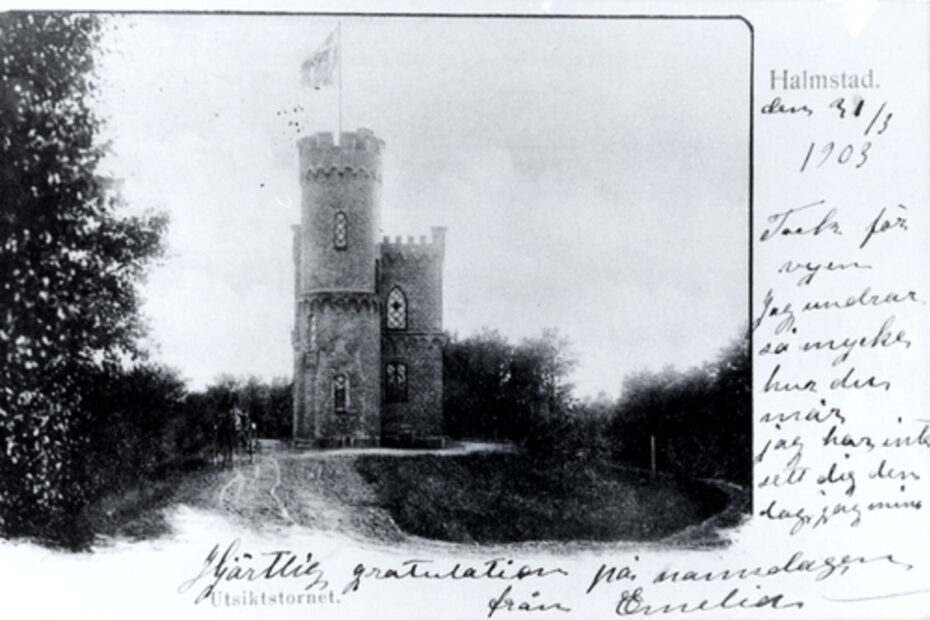 Halmstad.
den 31/3
1903
Tack för
vyen
Jag undrar
så mycke
hur du
mår
jag har inte
sett dig den
dag, jag minns
Hjärtlig gratulation på namnsdagen
Utsiktstornet.
från Emelia